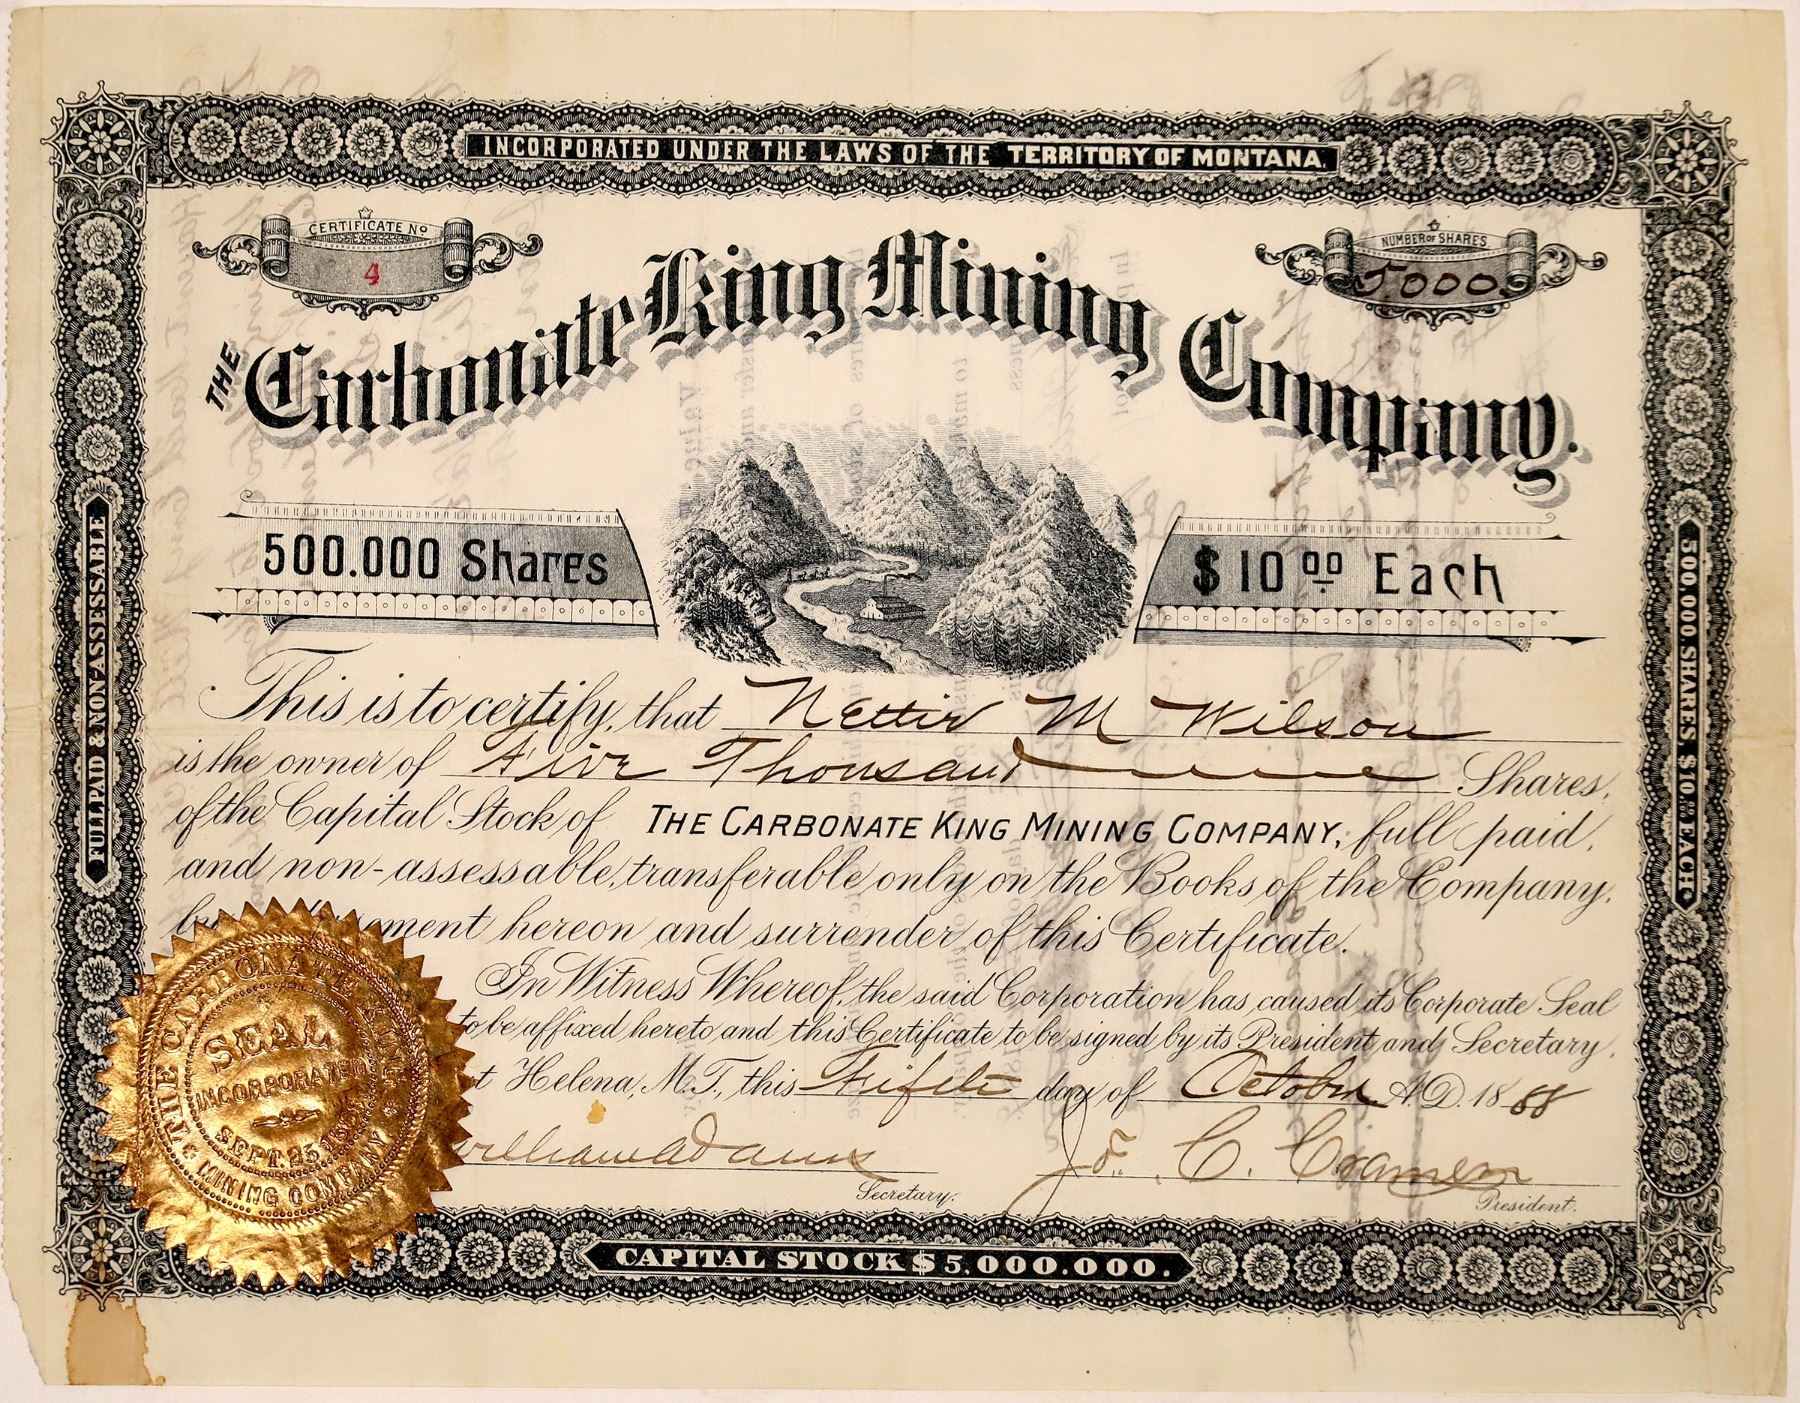 INCORPORATED UNDER THE LAWS OF THE TERRITORY OF MONTANA.
CERTIFICATE No
4
NUMBER OF SHARES.
5000.
THE Carbonate King Mining Company.
500.000 Shares
$10 00 Each
FULL PAID & NON-ASSESSABLE
500,000 SHARES $10.00 EACH
This is to certify, that Nettie M Wilson
is the owner of Five Thousand Shares,
of the Capital Stock of THE CARBONATE KING MINING COMPANY, full paid,
and non-assessable, transferable only on the Books of the Company,
ment hereon and surrender of this Certificate.
In Witness Whereof, the said Corporation has caused its Corporate Seal
to be affixed hereto and this Certificate to be signed by its President and Secretary,
t Helena, M.T., this Fifth day of October A.D. 1888
William Adams
Secretary.
Jo. C. Cramer
President.
THE CARBONATE KING
SEAL
INCORPORATED
SEPT. 25, 1888
MINING COMPANY
CAPITAL STOCK $5.000.000.